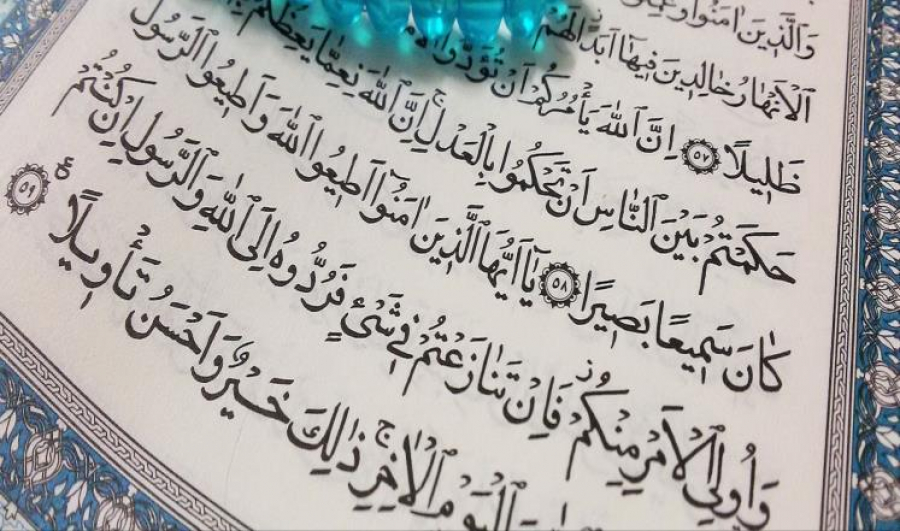 وَالَّذِينَ اٰمَنُوا
الْاَنْهَارُ خَالِدِينَ فِيهَٓا اَبَدًا لَهُمْ
ظَلِيلًا ٥٧ اِنَّ اللّٰهَ يَأْمُرُكُمْ اَنْ تُؤَدُّوا
حَكَمْتُمْ بَيْنَ النَّاسِ اَنْ تَحْكُمُوا بِالْعَدْلِۚ اِنَّ اللّٰهَ نِعِمَّا يَعِظُكُمْ
كَانَ سَمِيعًا بَصِيرًا ٥٨ يَٓا اَيُّهَا الَّذِينَ اٰمَنُٓوا اَطِيعُوا اللّٰهَ وَاَطِيعُوا الرَّسُولَ
وَاُولِي الْاَمْرِ مِنْكُمْۚ فَاِنْ تَنَازَعْتُمْ فِي شَيْءٍ فَرُدُّوهُ اِلَى اللّٰهِ وَالرَّسُولِ اِنْ كُنْتُمْ
الْيَوْمِ الْاٰخِرِۚ ذٰلِكَ خَيْرٌ وَاَحْسَنُ تَأْوِيلًا ع ٥٩